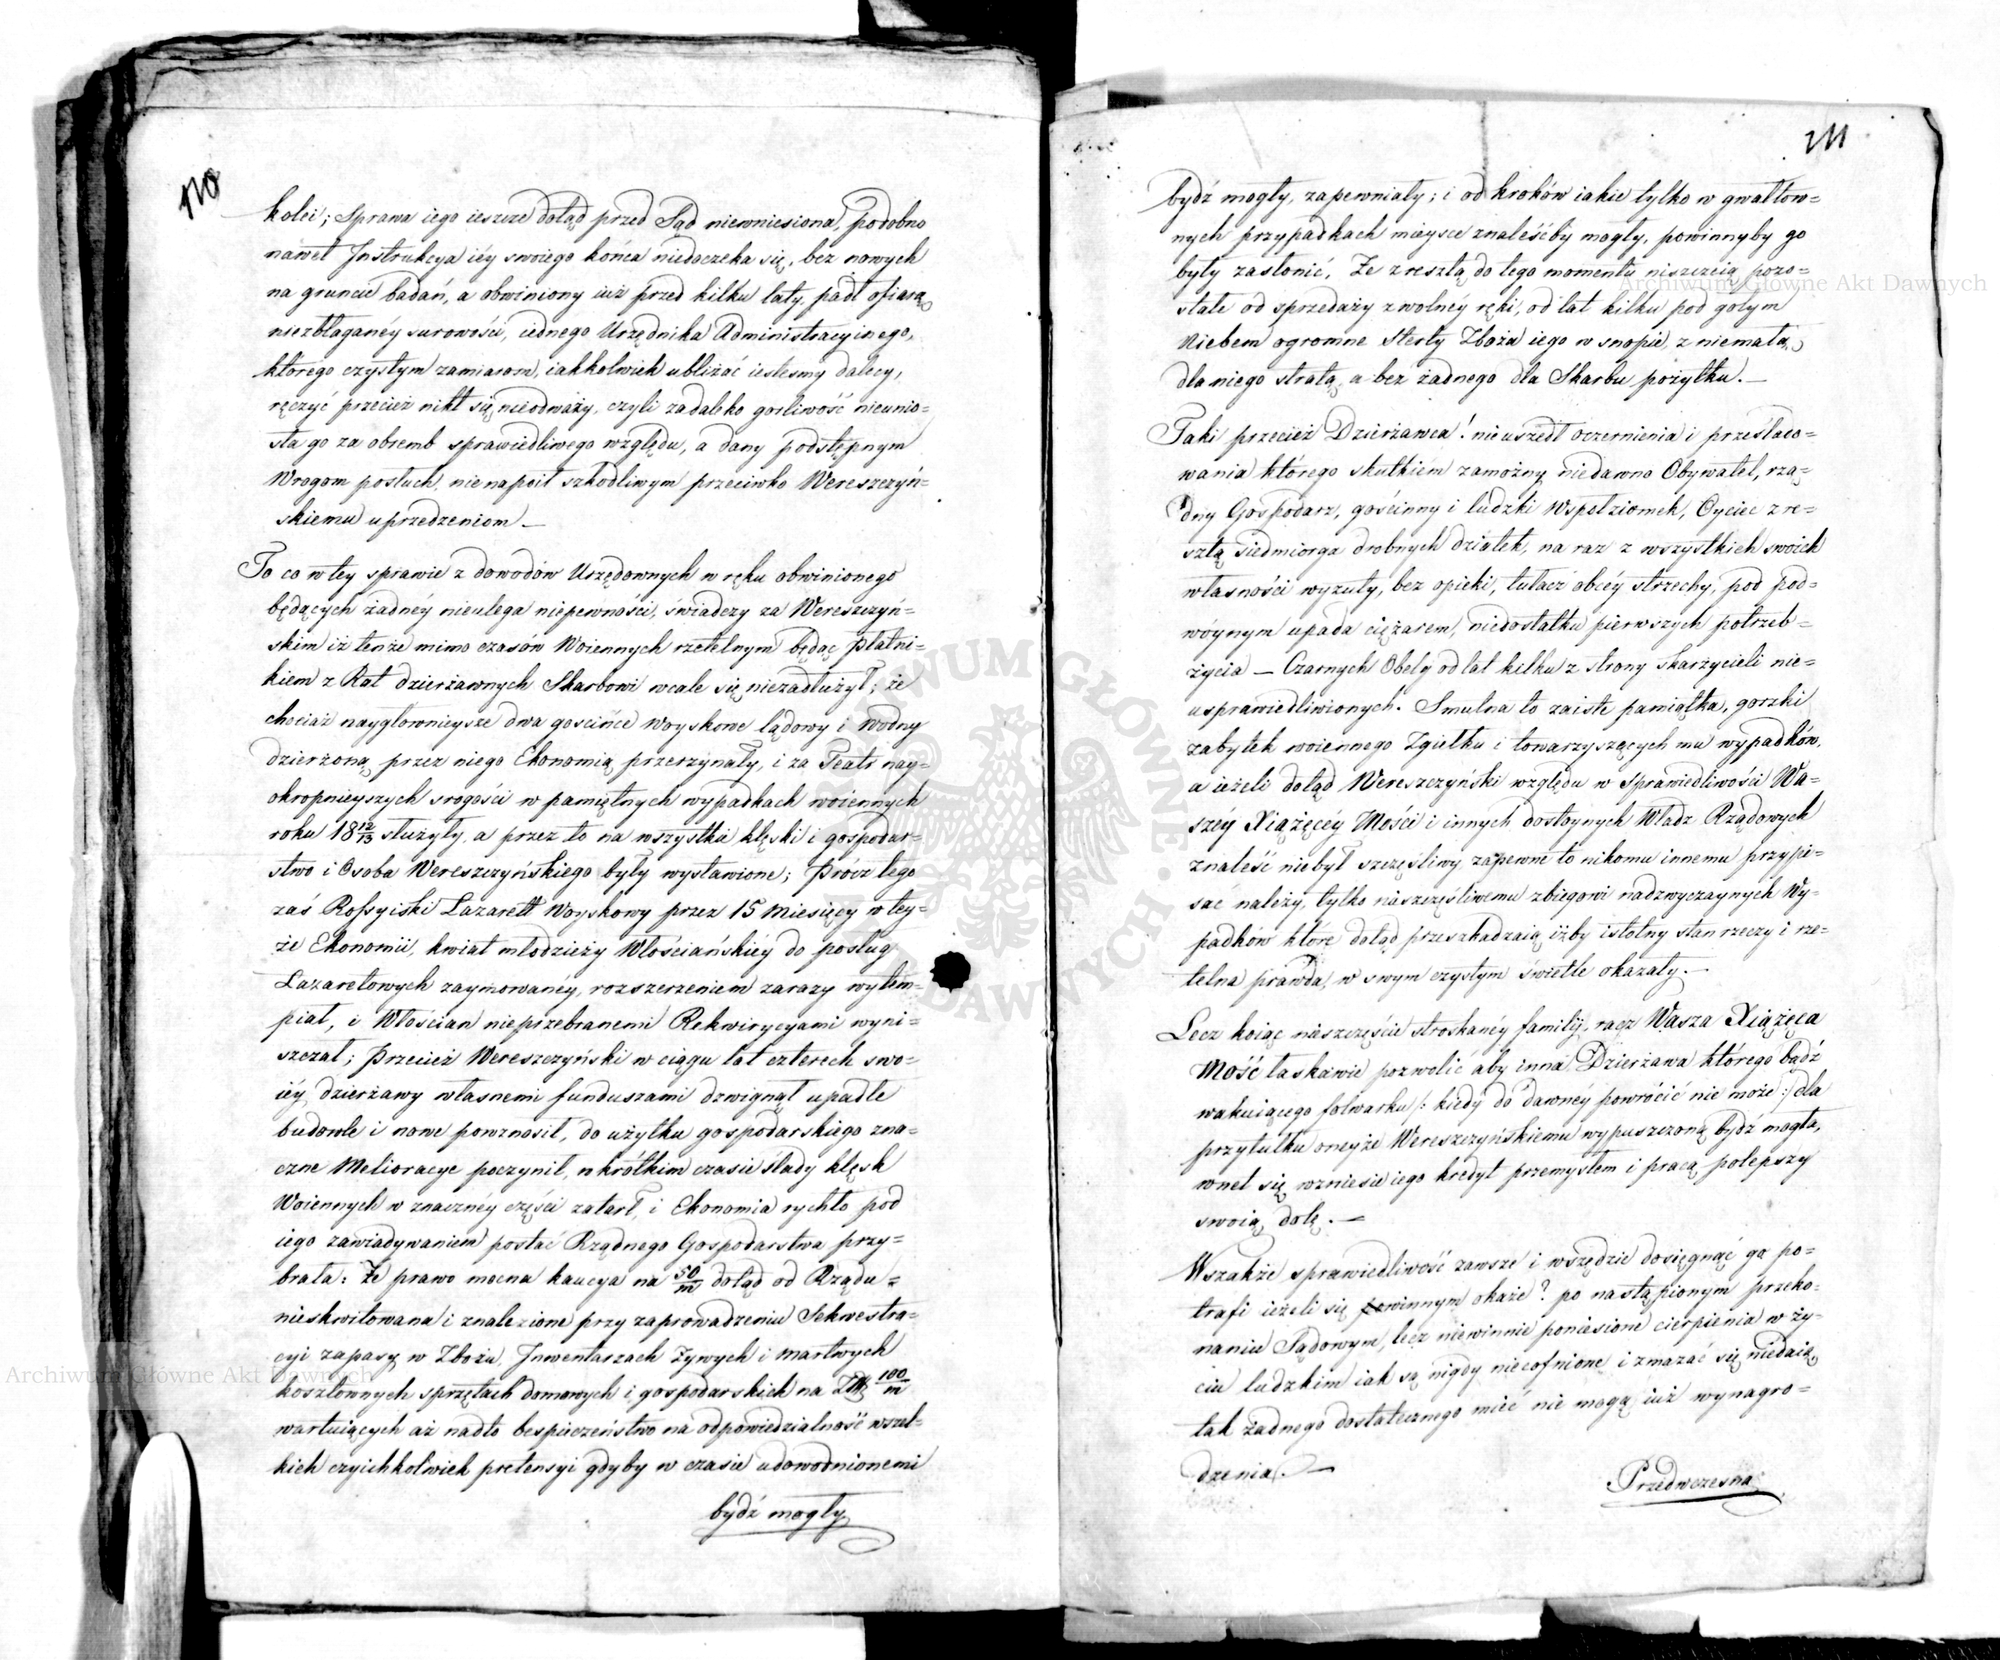 110
kolei; Sprawa iego ieszcze dotąd przed Sąd niewniesiona, podobno
nawet Instrukcya iéy swoiego końca niedoczeka się, bez nowych
na gruncie badań, a obwiniony iuż przed kilku laty, padł ofiarą
niezbłaganéy surowości, iednego Urzędnika Administracyinego,
którego czystym zamiarom, iakkolwiek ubliżać iestesmy dalecy,
ręczyć przecież nikt się nieodważy, czyli zadaleko gorliwość nieunio=
sła go za obremb sprawiedliwego względu, a dany podstępnym
Wrogom posłuch, nienapoił szkodliwym przeciwko Wereszczyń=
skiemu uprzedzeniom. —
To co w tey sprawie z dowodów Urzędownych w ręku obwinionego
będących żadnéy nieulega niepewności, świadczy za Wereszczyń=
skim iż tenże mimo czasów Woiennych rzetelnym będąc płatni=
kiem z Rat dzierżawnych Skarbowi wcale się niezadłużył; że
chociaż naygłownieysze dwa gościńce Woyskowe lądowy i Wodny
dzierżoną przez niego Ekonomią przerzynały, i za Teatr nay=
okropnieyszych srogości w pamiętnych wypadkach woiennych
roku 18 12/13 służyły, a przez to na wszystkie klęski i gospodar=
stwo i Osoba Wereszczyńskiego były wystawione; Prócz tego
zaś Rossyiski Lazarett Woyskowy przez 15 Miesięcy w tey=
że Ekonomii, kwiat młodzieży Włościańskiéy do posług
Lazaretowych zaymowanéy, rozszerzeniem zarazy wytem=
piał, i Włościan nieprzebranemi Rekwizycyami wyni=
szczał; Przecież Wereszczyński w ciągu lat czterech swo=
iéy dzierżawy własnemi funduszami dzwignął upadłe
budowle i nowe powznosił, do użytku gospodarskiego zna=
czne Melioracye poczynił, w krótkim czasie ślady klęsk
Woiennych w znacznéy części zatarł, i Ekonomia rychło pod
iego zawiadywaniem postać Rządnego Gospodarstwa przy=
brała: Że prawo mocna kaucya na 50/m dotąd od Rządu=
nieskwitowana i znalezione przy zaprowadzeniu Sekwestra=
cyi zapasy w Zbożu, Inwentarzach żywych i martwych
kosztownych sprzętach domowych i gospodarskich na Złł 100/m
wartuiących aż nadto bespieczeństwo na odpowiedzialność wszel=
kich czyichkolwiek pretensyi gdyby w czasie udowodnionemi
bydź mogły
111
bydź mogły, zapewniały; i od kroków iakie tylko w gwałtow=
nych przypadkach mieysce znaleśćby mogły, powinnyby go
były zasłonić, Że zresztą do tego momentu niszczeią pozo=
stałe od sprzedaży z wolnéy ręki, od lat kilku pod gołym
Niebem ogromne Sterty Zboża iego w snopie, z niemałą
dla niego stratą, a bez żadnego dla Skarbu pożytku. —
Taki przecież Dzierżawca! nieuszedł oczernienia i prześlado=
wania którego skutkiém zamożny niedawno Obywatel, rzą=
dny Gospodarz, gościnny i ludzki Wspołziomek, Oyciec zre=
sztą siedmiorga drobnych dziatek, na raz z wszystkich swoich
własności wyzuty, bez opieki, tułacz obcéy strzechy, pod pod=
wóynym upada ciężarem, niedostatku pierwszych potrzeb=
życia — Czarnych Obelg od lat kilku z strony skarżycieli nie=
usprawiedliwionych. Smutna to zaiste pamiątka, gorzki
zabytek woiennego Zgiełku i towarzyszących mu wypadków,
a ieżeli dotąd Wereszczyński względu w sprawiedliwości Wa=
széy Xiążęcéy Mości i innych dostoynych Władz Rządowych
znaleść niebył szczęśliwy, zapewne to nikomu innemu przypi=
sać należy, tylko nieszczęśliwemu zbiegowi nadzwyczaynych Wy=
padków które dotąd przeszkadzaią iżby istotny stan rzeczy i rze=
telna prawda, w swym czystym świetle okazały. —
Lecz koiąc nieszczęście stroskanéy familij, racz Wasza Xiążęca
Mość łaskawie pozwolić aby inna Dzierżawa którego bądź
wakuiącego folwarku /: kiedy do dawnéy powrócić nie może :/ dla
przytułku oneyże Wereszczyńskiemu wypuszczoną bydź mogła,
wnet się wzniesie iego kredyt przemysłem i pracą polepszy
swoią dolę. —
Wszakże sprawiedliwość zawsze i wszędzie dosięgnąć go po=
trafi ieżeli się winnym okaże? po nastąpionym przeko=
naniu Sądowym, lecz niewinnie poniesione cierpienia w ży=
ciu ludzkim iak są nigdy niecofnione i zmazać się niedaią
tak żadnego dostatecznego mieć nie mogą iuż wynagro=
dzenia. —
Przedwczesna